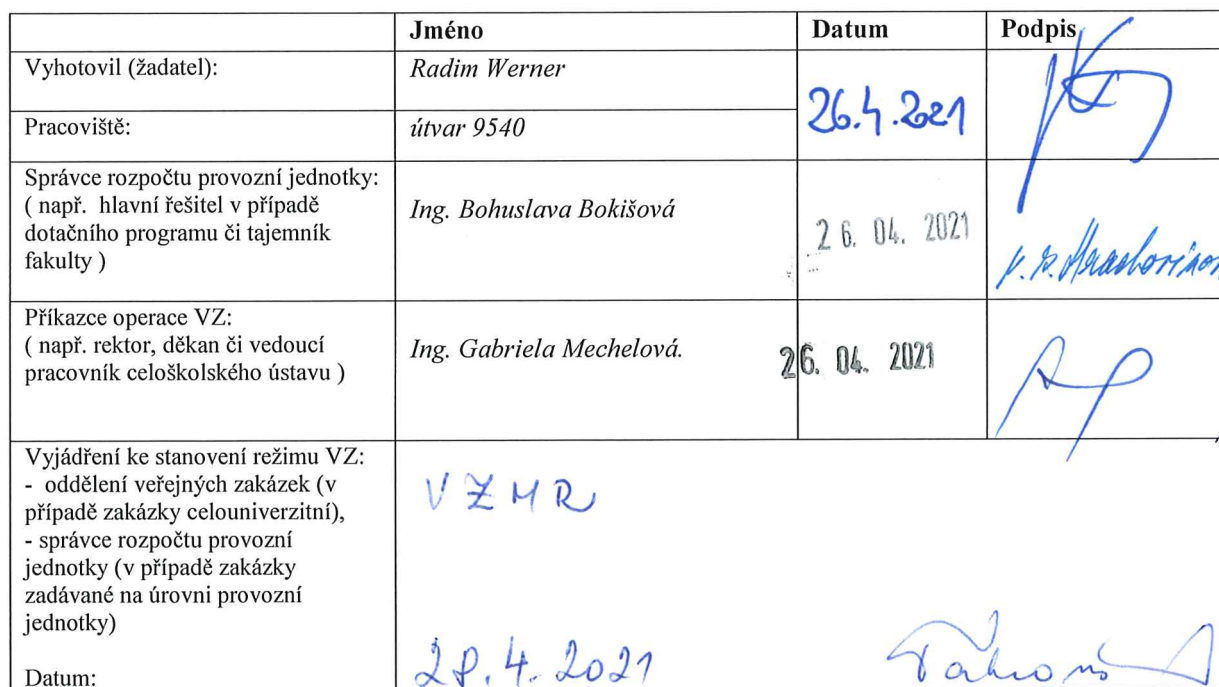 Jméno Datum Podpis
Vyhotovil (žadatel): Radim Werner
26.4.2021
Pracoviště: útvar 9540
Správce rozpočtu provozní jednotky:
( např. hlavní řešitel v případě
dotačního programu či tajemník
fakulty )
Ing. Bohuslava Bokišová
26. 04. 2021
Příkazce operace VZ:
( např. rektor, děkan či vedoucí
pracovník celoškolského ústavu )
Ing. Gabriela Mechelová.
26. 04. 2021
Vyjádření ke stanovení režimu VZ:
- oddělení veřejných zakázek (v
případě zakázky celouniverzitní),
- správce rozpočtu provozní
jednotky (v případě zakázky
zadávané na úrovni provozní
jednotky)
VZMR
Datum: 28.4.2021